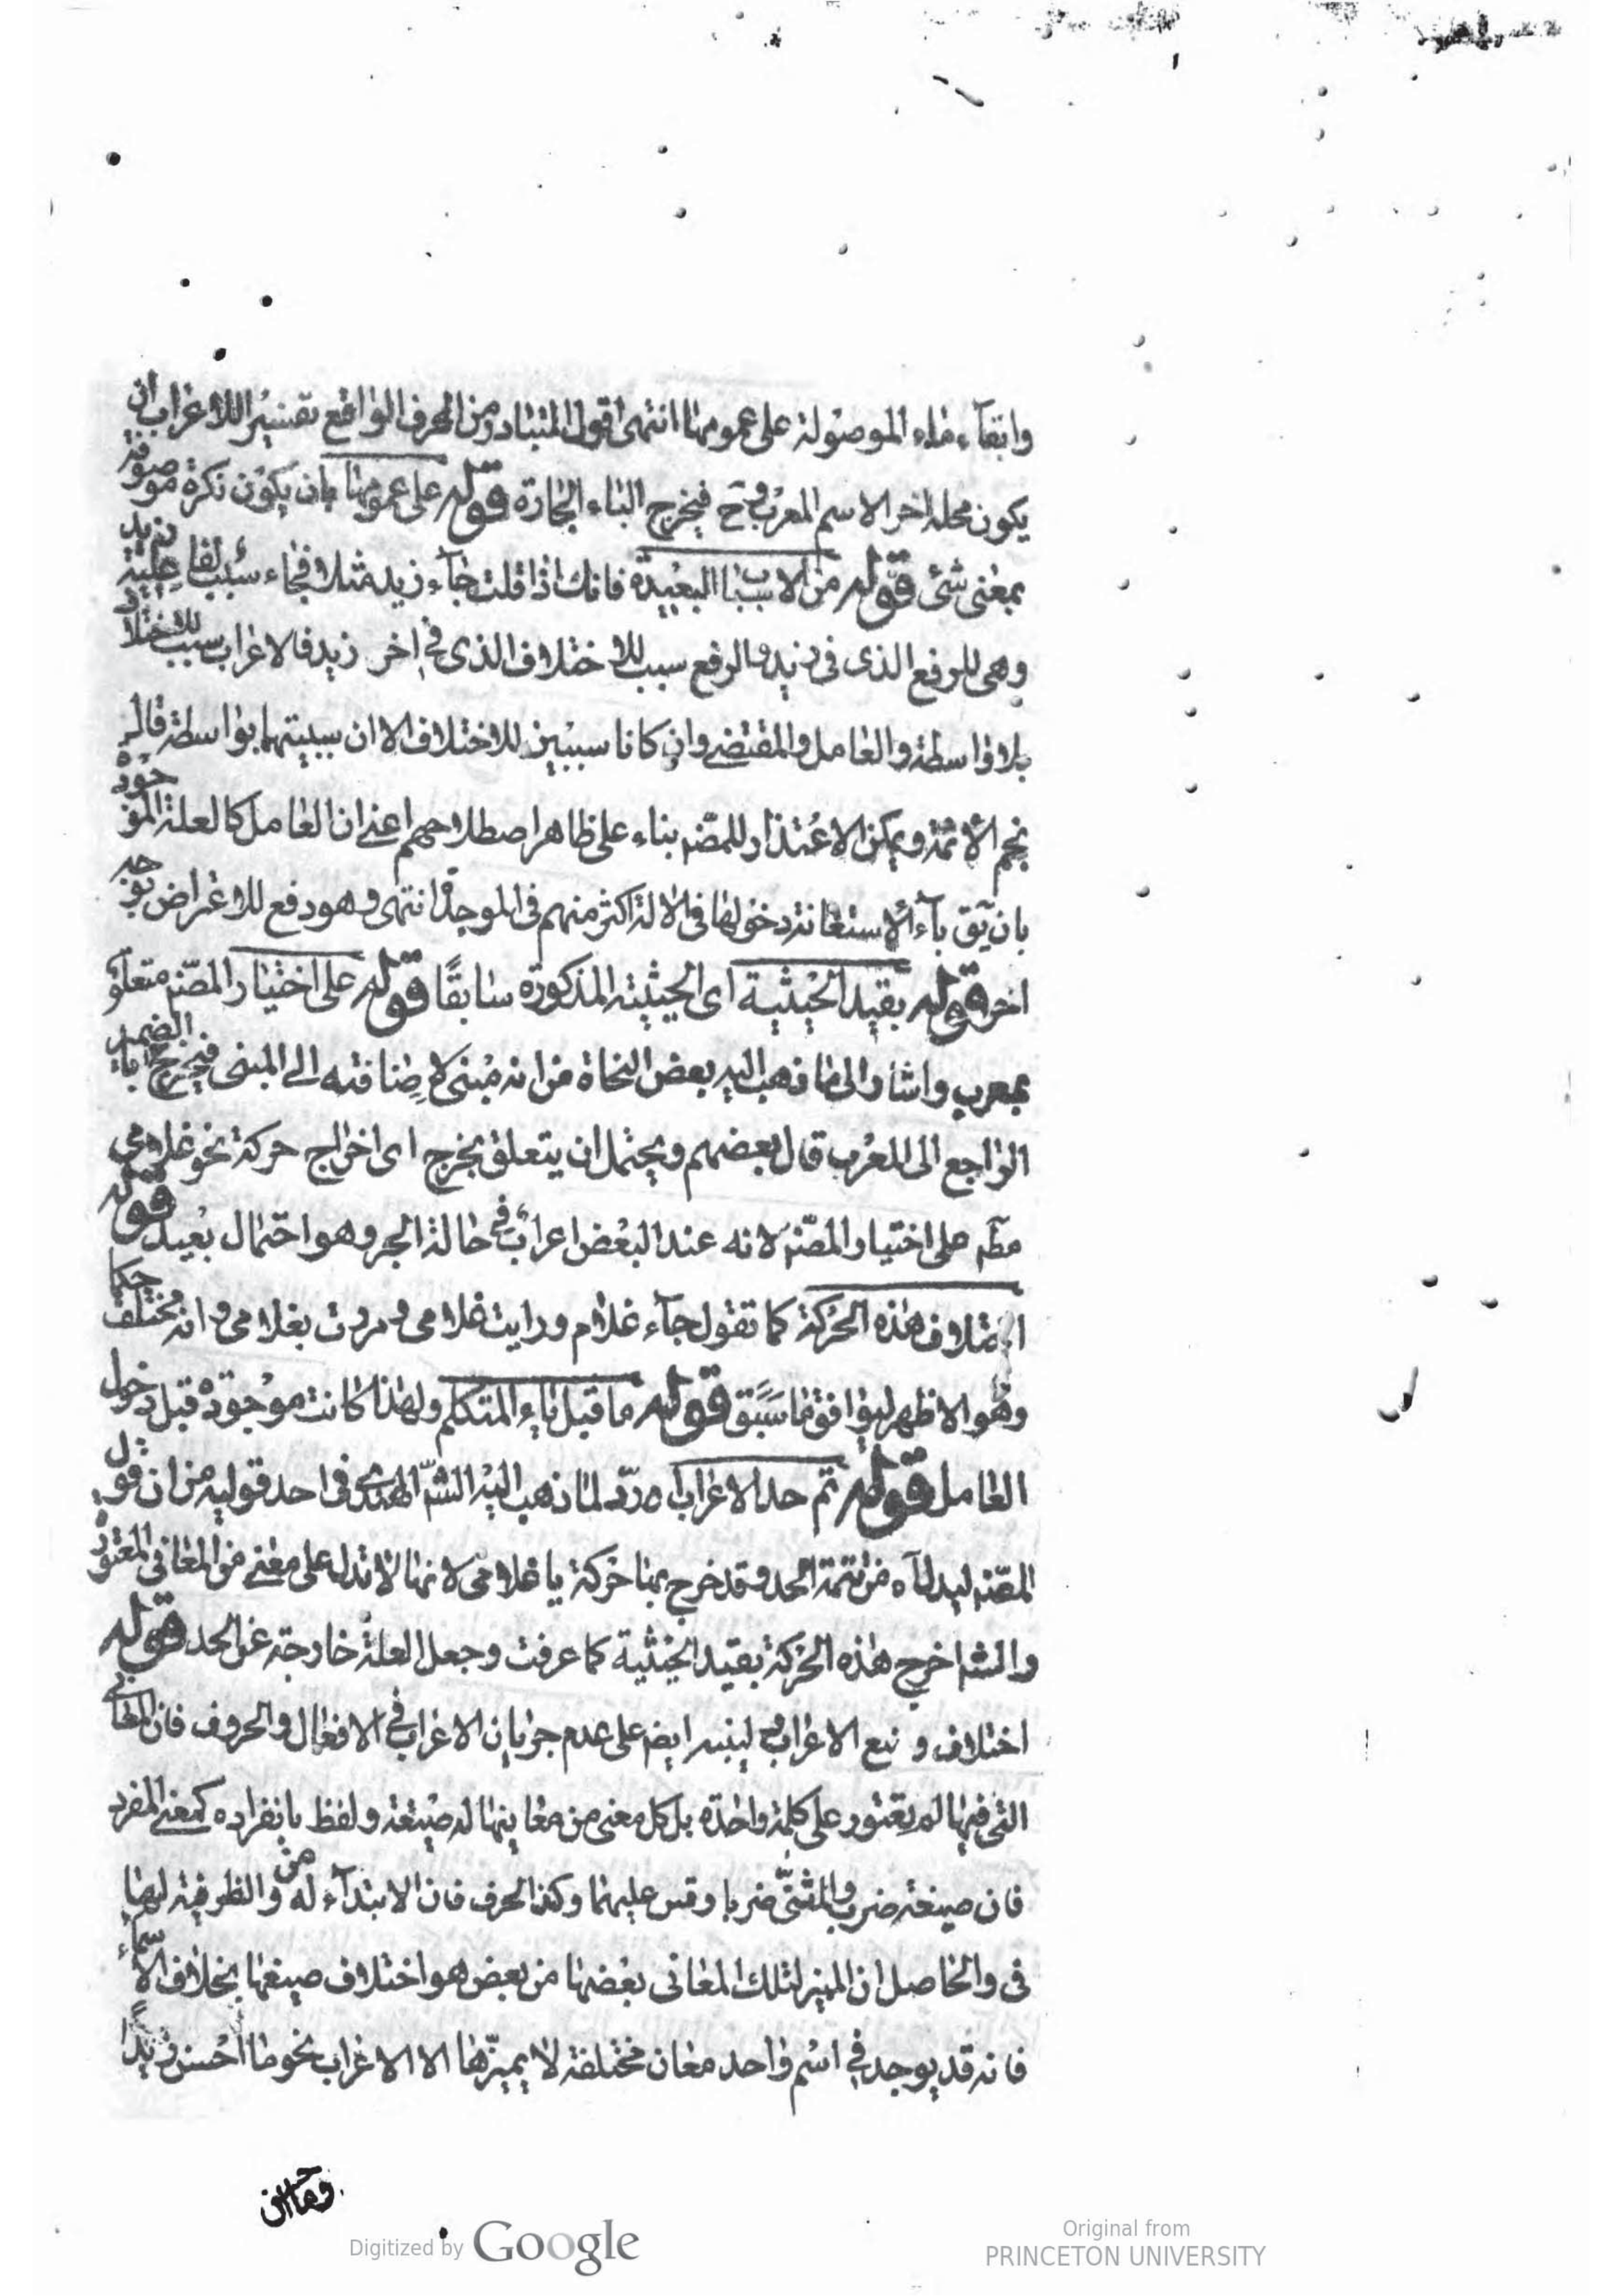 وابقاء ماء الموصولة على عمومها انتهى اقول المتبادر من الحرف الواقع تفسير اللاعراب ان
يكون محله اخر الاسم المعرب وح فيخرج الباء الجارة قوله على عمومها بان يكون نكرة موصوفة
بمعنى شئ قوله من الاسباب البعيدة فانك اذا قلت جآء زيد مثلا فجاء سبب لفاعلية زيد
وهى للرفع الذى فى زيد والرفع سبب للاختلاف الذى فى اخر زيد فالاعراب سبب للاختلاف
بلا واسطة والعامل والمقتضى وان كانا سببين للاختلاف الا ان سببيتهما بواسطة قال
نجم الائمة ويمكن الاعتذار للمصنه بناء على ظاهر اصطلاحهم اعنى ان العامل كالعلة الموجودة
بان يق بآء الاستعانة دخولها فى الالة اكثر منهم فى الموجدة انتهى وهو دفع للاعتراض بوجه
اخر قوله بقيد الحيثية اى الحيثية المذكورة سابقًا قوله على اختيار المصنه متعلق
بمعرب واشار الى ما ذهب اليه بعض النحاة من انه مبنى لاضافته الى المبنى فيخرج ح باء الضمير
الراجع الى المعرب قال بعضهم ويحتمل ان يتعلق بخرج اى اخراج حركة نحو غلامى
مطم على اختيار المصنه لانه عند البعض اعراب فى حالة الجر وهو احتمال بعيد قوله
اختلاف هذه الحركة كما تقول جآء غلام ورايت غلامى ومررت بغلامى وانه مختلف حكما
وهو الاظهر ليوافق ما سبق قوله ما قبل ياء المتكلم ولهذا كانت موجودة قبل دخول
العامل قوله تم حد الاعراب اه ردّ لما ذهب اليه الشّ الهندى فى احد قوليه من ان قول
المصنه ليدل آه من تتمة الحد وقد خرج بها حركة يا غلامى لانها لا تدل على معنى من المعانى المعتورة
والشم اخرج هذه الحركة بقيد الحيثية كما عرفت وجعل العلة خارجة عن الحد قوله
اختلاف و نبع الاعراب لينبه ايضم على عدم جريان الاعراب فى الافعال والحروف فان المعانى
التى فيها لم يعتور على كلمة واحدة بل كل معنى من معاينها له صيغة ولفظ بانفراده كمعنى المفرد
فان صيغة ضرب والمثنّى ضربا وقس عليهما وكذا الحرف فان الابتدآء له من والظرفية لها
فى والحاصل ان المميز لتلك المعانى بعضها من بعض هو اختلاف صيغها بخلاف الاسماء
فانه قد يوجد فى اسم واحد معان مختلفة لا يميّزها الا الاعراب نحو ما احسن زيدًا
Digitized by Google
Original from
PRINCETON UNIVERSITY